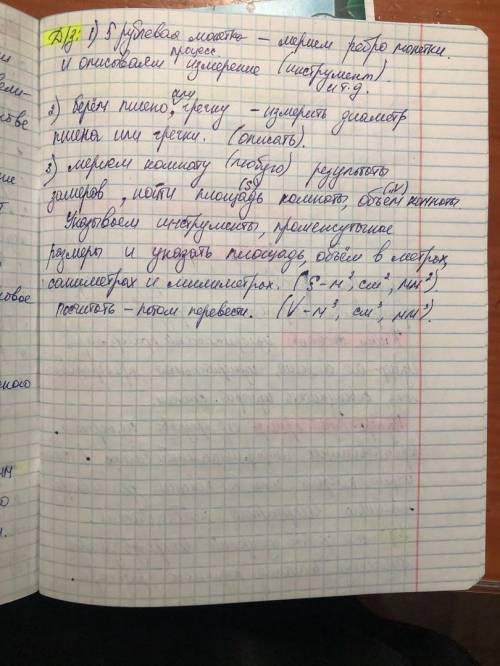 Д/з: 1) 5 рублевая монетка – меряем ребро монетки.
и описываем процесс измерение (инструмент)
и т.д.
2) Берём пшено, или гречку – измерить диаметр
пшена или гречки. (описать).
3) меряем комнату (любую) результаты
замеров, найти площадь (S) комнаты, объём (V) комнаты
Указываем инструменты, промежуточные
размеры и указать площадь, объём в метрах,
сантиметрах и миллиметрах. (S – м², см², мм²)
посчитать – потом перевести. (V – м³, см³, мм³).